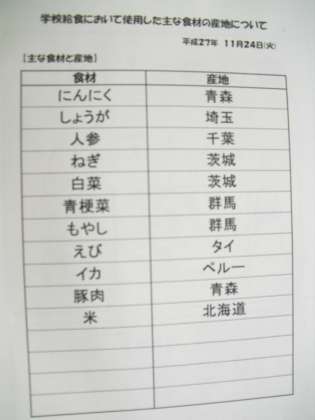 学校給食において使用した主な食材の産地について
平成27年 11月24日(火)
[主な食材と産地]
食材 産地
にんにく 青森
しょうが 埼玉
人参 千葉
ねぎ 茨城
白菜 茨城
青梗菜 群馬
もやし 群馬
えび タイ
イカ ペルー
豚肉 青森
米 北海道